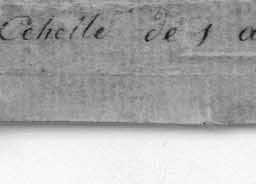 Echelle de 1 a